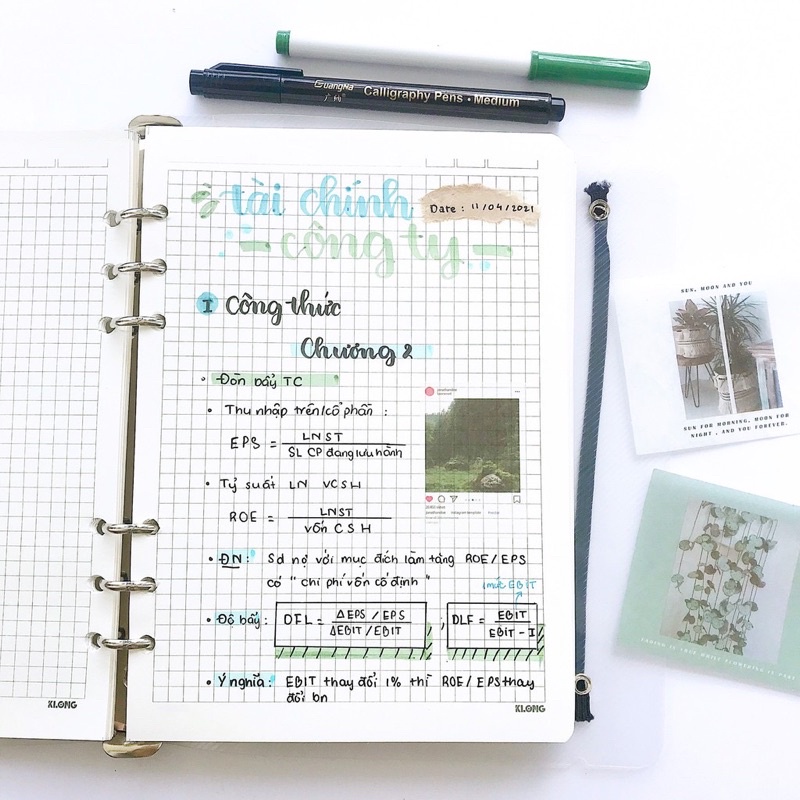 GuangNa
Calligraphy Pens • Medium
tài chính
Date : 11/04/2021
công ty
I Công thức
Chương 2
• Đòn bẩy TC
• Thu nhập trên 1 cổ phần :
EPS = LNST
SL CP đang lưu hành
• Tỷ suất LN VCSH
ROE = LNST
Vốn CSH
• ĐN : Sd nợ với mục đích làm tăng ROE/EPS
có " chi phí vốn cố định "
1 mức EBIT
• Độ bẩy : DFL = ΔEPS / EPS ; DLF = EBIT
ΔEBIT / EBIT EBIT - I
• Ý nghĩa : EBIT thay đổi 1% thì ROE / EPS thay
đổi bn
KLONG
KLONG
SUN, MOON AND YOU
SUN FOR MORNING, MOON FOR
NIGHT , AND YOU FOREVER.